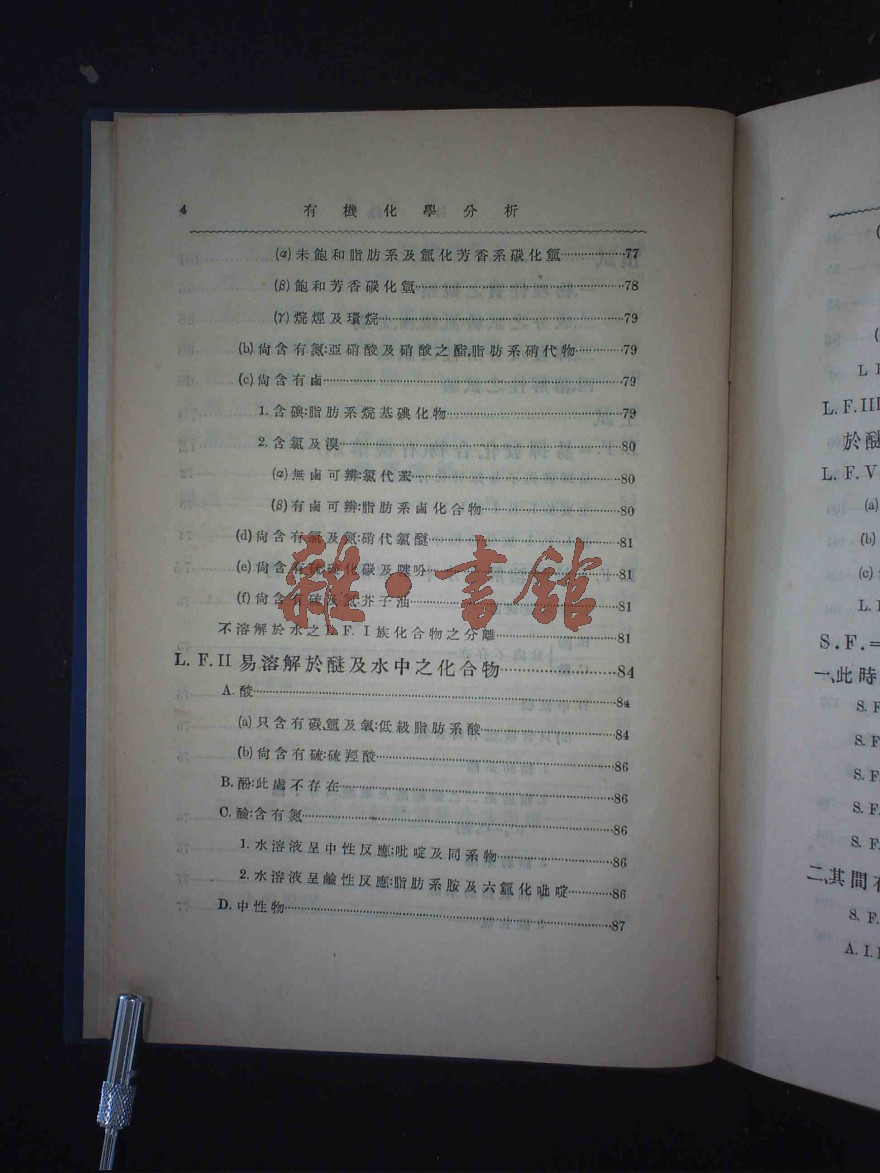 4 有機化學分析
(α)未飽和脂肪系及氫化芳香系碳化氫………………77
(β)飽和芳香碳化氫………………78
(γ)烷烴及環烷………………79
(b)尙含有氮:亞硝酸及硝酸之酯,脂肪系硝代物…………79
(c)尙含有鹵………………79
1.含碘:脂肪系烷基碘化物………………79
2.含氯及溴………………80
(α)無鹵可辨:氯代苯………………80
(β)有鹵可辨:脂肪系鹵化合物………………80
(d)尙含有氯及氮:硝代氯醚………………81
(e)尙含有硫:硫化碳及噻吩………………81
(f)尙含有硫及氮:芥子油………………81
不溶解於水之L.F. I 族化合物之分離………………81
L. F. II 易溶解於醚及水中之化合物………………84
A.酸………………84
(a)只含有碳,氫及氧:低級脂肪系酸………………84
(b)尙含有硫:硫羥酸………………86
B.酚:此處不存在………………86
C.鹼:含有氮………………86
1.水溶液呈中性反應:吡啶及同系物………………86
2.水溶液呈鹼性反應:脂肪系胺及六氫化吡啶…………86
D.中性物………………87
雜·書館
L. F. III
於醚
L. F. V
(a)
(b)
(c)
S.F.=
一,此時
S. F.
S. F.
S. F.
S. F.
S. F.
二,其間有
S. F.
A. I.